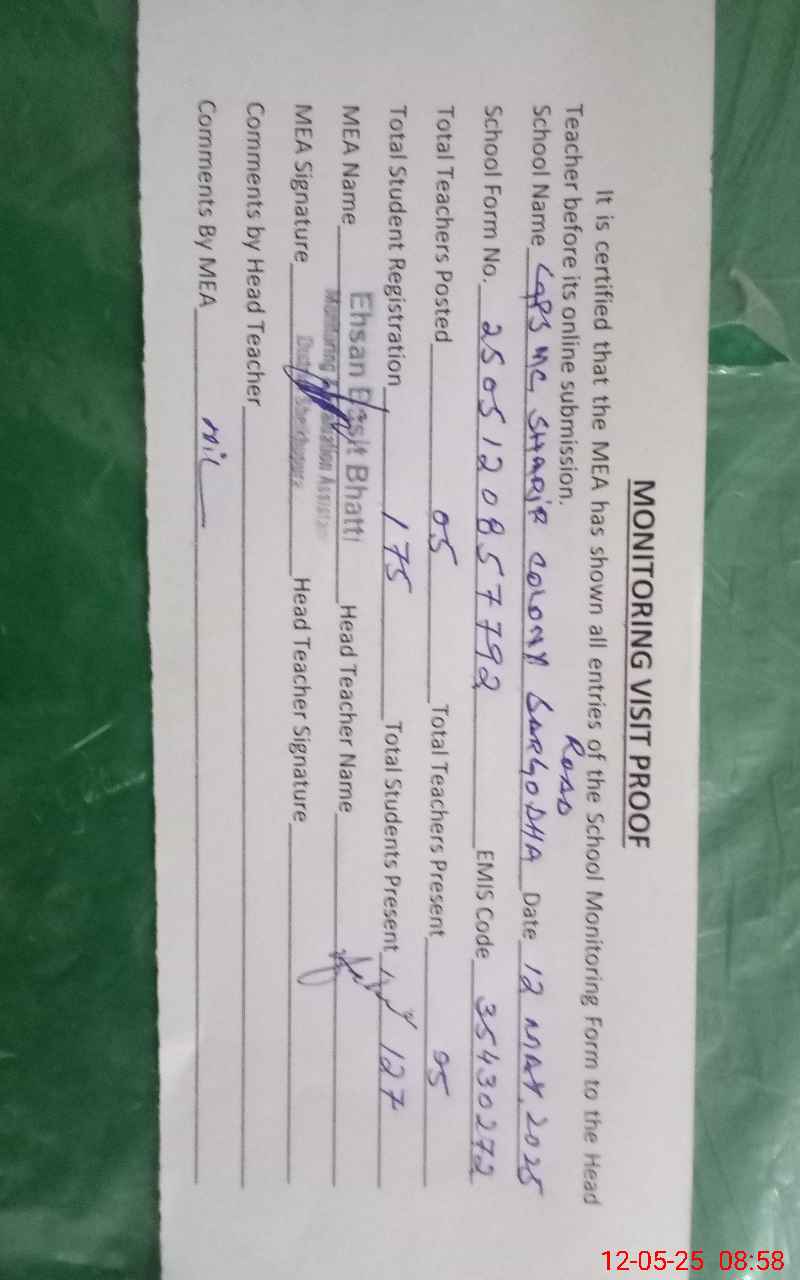 MONITORING VISIT PROOF
It is certified that the MEA has shown all entries of the School Monitoring Form to the Head
Teacher before its online submission.
Road
School Name GGPS MC SHARIF COLONY SARGODHA Date 12 MAY, 2025
School Form No. 2505120857792 EMIS Code 35430272
Total Teachers Posted 05 Total Teachers Present 05
Total Student Registration 175 Total Students Present 127
MEA Name Ehsan Basit Bhatti Head Teacher Name
Monitoring Evaluation Assistant
MEA Signature Head Teacher Signature
Comments by Head Teacher
Comments By MEA Nil
12-05-25 08:58